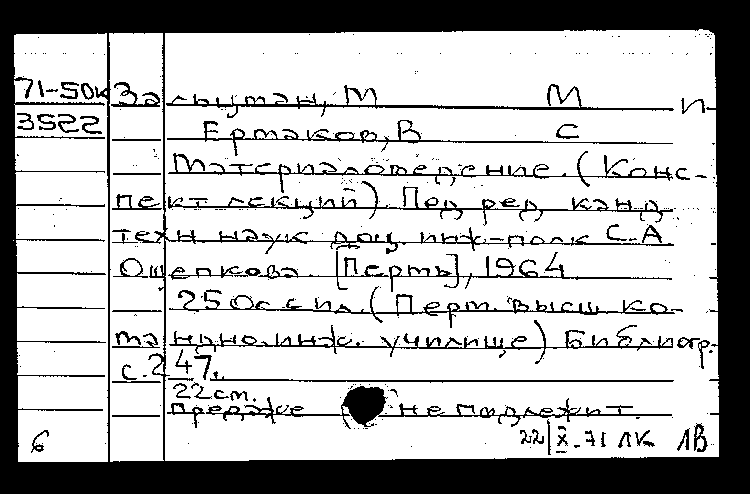 71-50к Зальцман, М М п
3522 Ермаков, В С
Материаловедение. (Конс-
пект лекций). Под ред. канд.
техн. наук доц. инж-полк С.А.
Ощепкова. [Пермь], 1964
250с с ил. (Перм. высш ко-
мандно.инж. училище) Библиогр.
с. 247.
22 см.
продаже не подлежит.
6 22/X-71 ЛК ЛВ